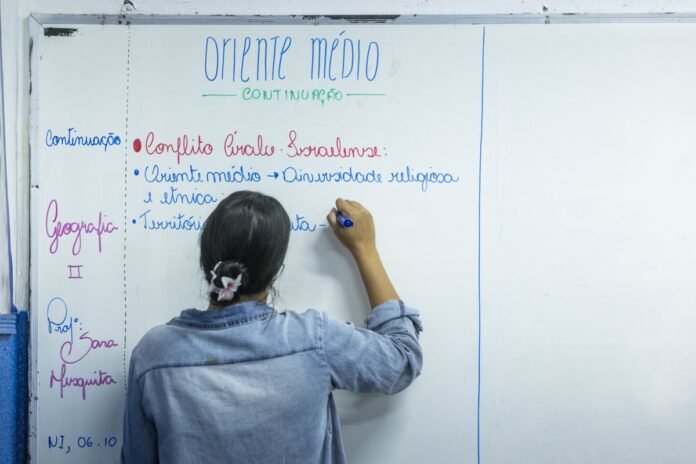 ORIENTE MÉDIO
CONTINUAÇÃO
Continuação
Geografia
II
Profª:
Sara
Mesquita
NI, 06.10
• Conflito Árabe - Israelense:
• Oriente médio → Diversidade religiosa
e etnica